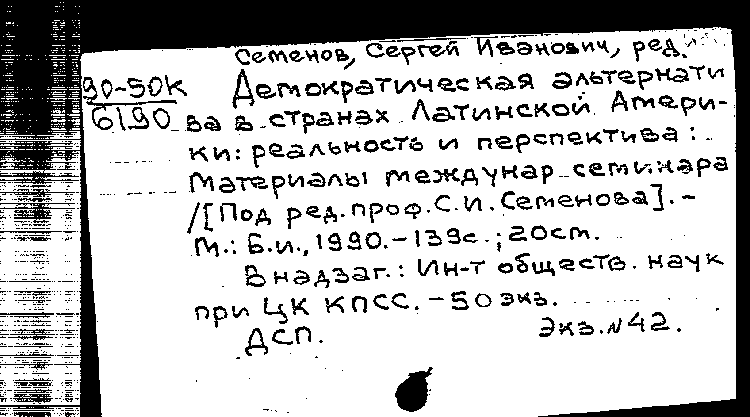 Семенов, Сергей Иванович, ред.
90-50К Демократическая альтернати
6190 ва в странах Латинской Амери-
ки: реальность и перспектива:
Материалы междунар. семинара
/[Под ред. проф. С.И. Семенова]. –
М.: Б.и., 1990. – 139с.; 20см.
В надзаг.: Ин-т обществ. наук
при ЦК КПСС. – 50 экз.
ДСП. Экз. №42.